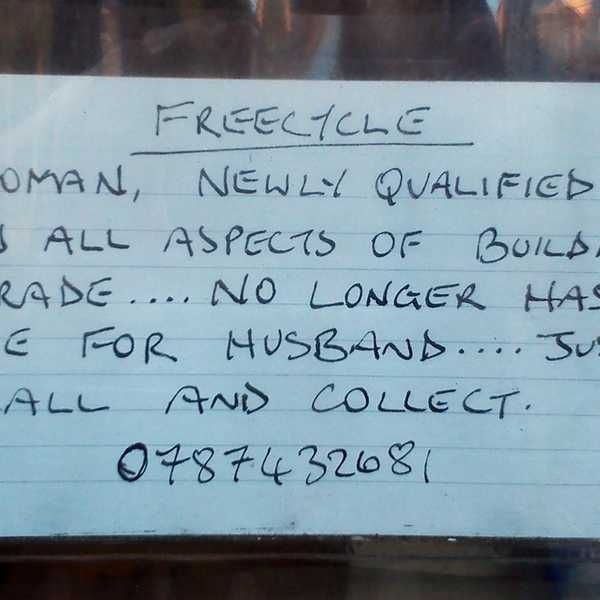 FREECYCLE
OMAN, NEWLY QUALIFIED
ALL ASPECTS OF BUILD
RADE.... NO LONGER HAS
E FOR HUSBAND.... JUS
ALL AND COLLECT.
07874432681